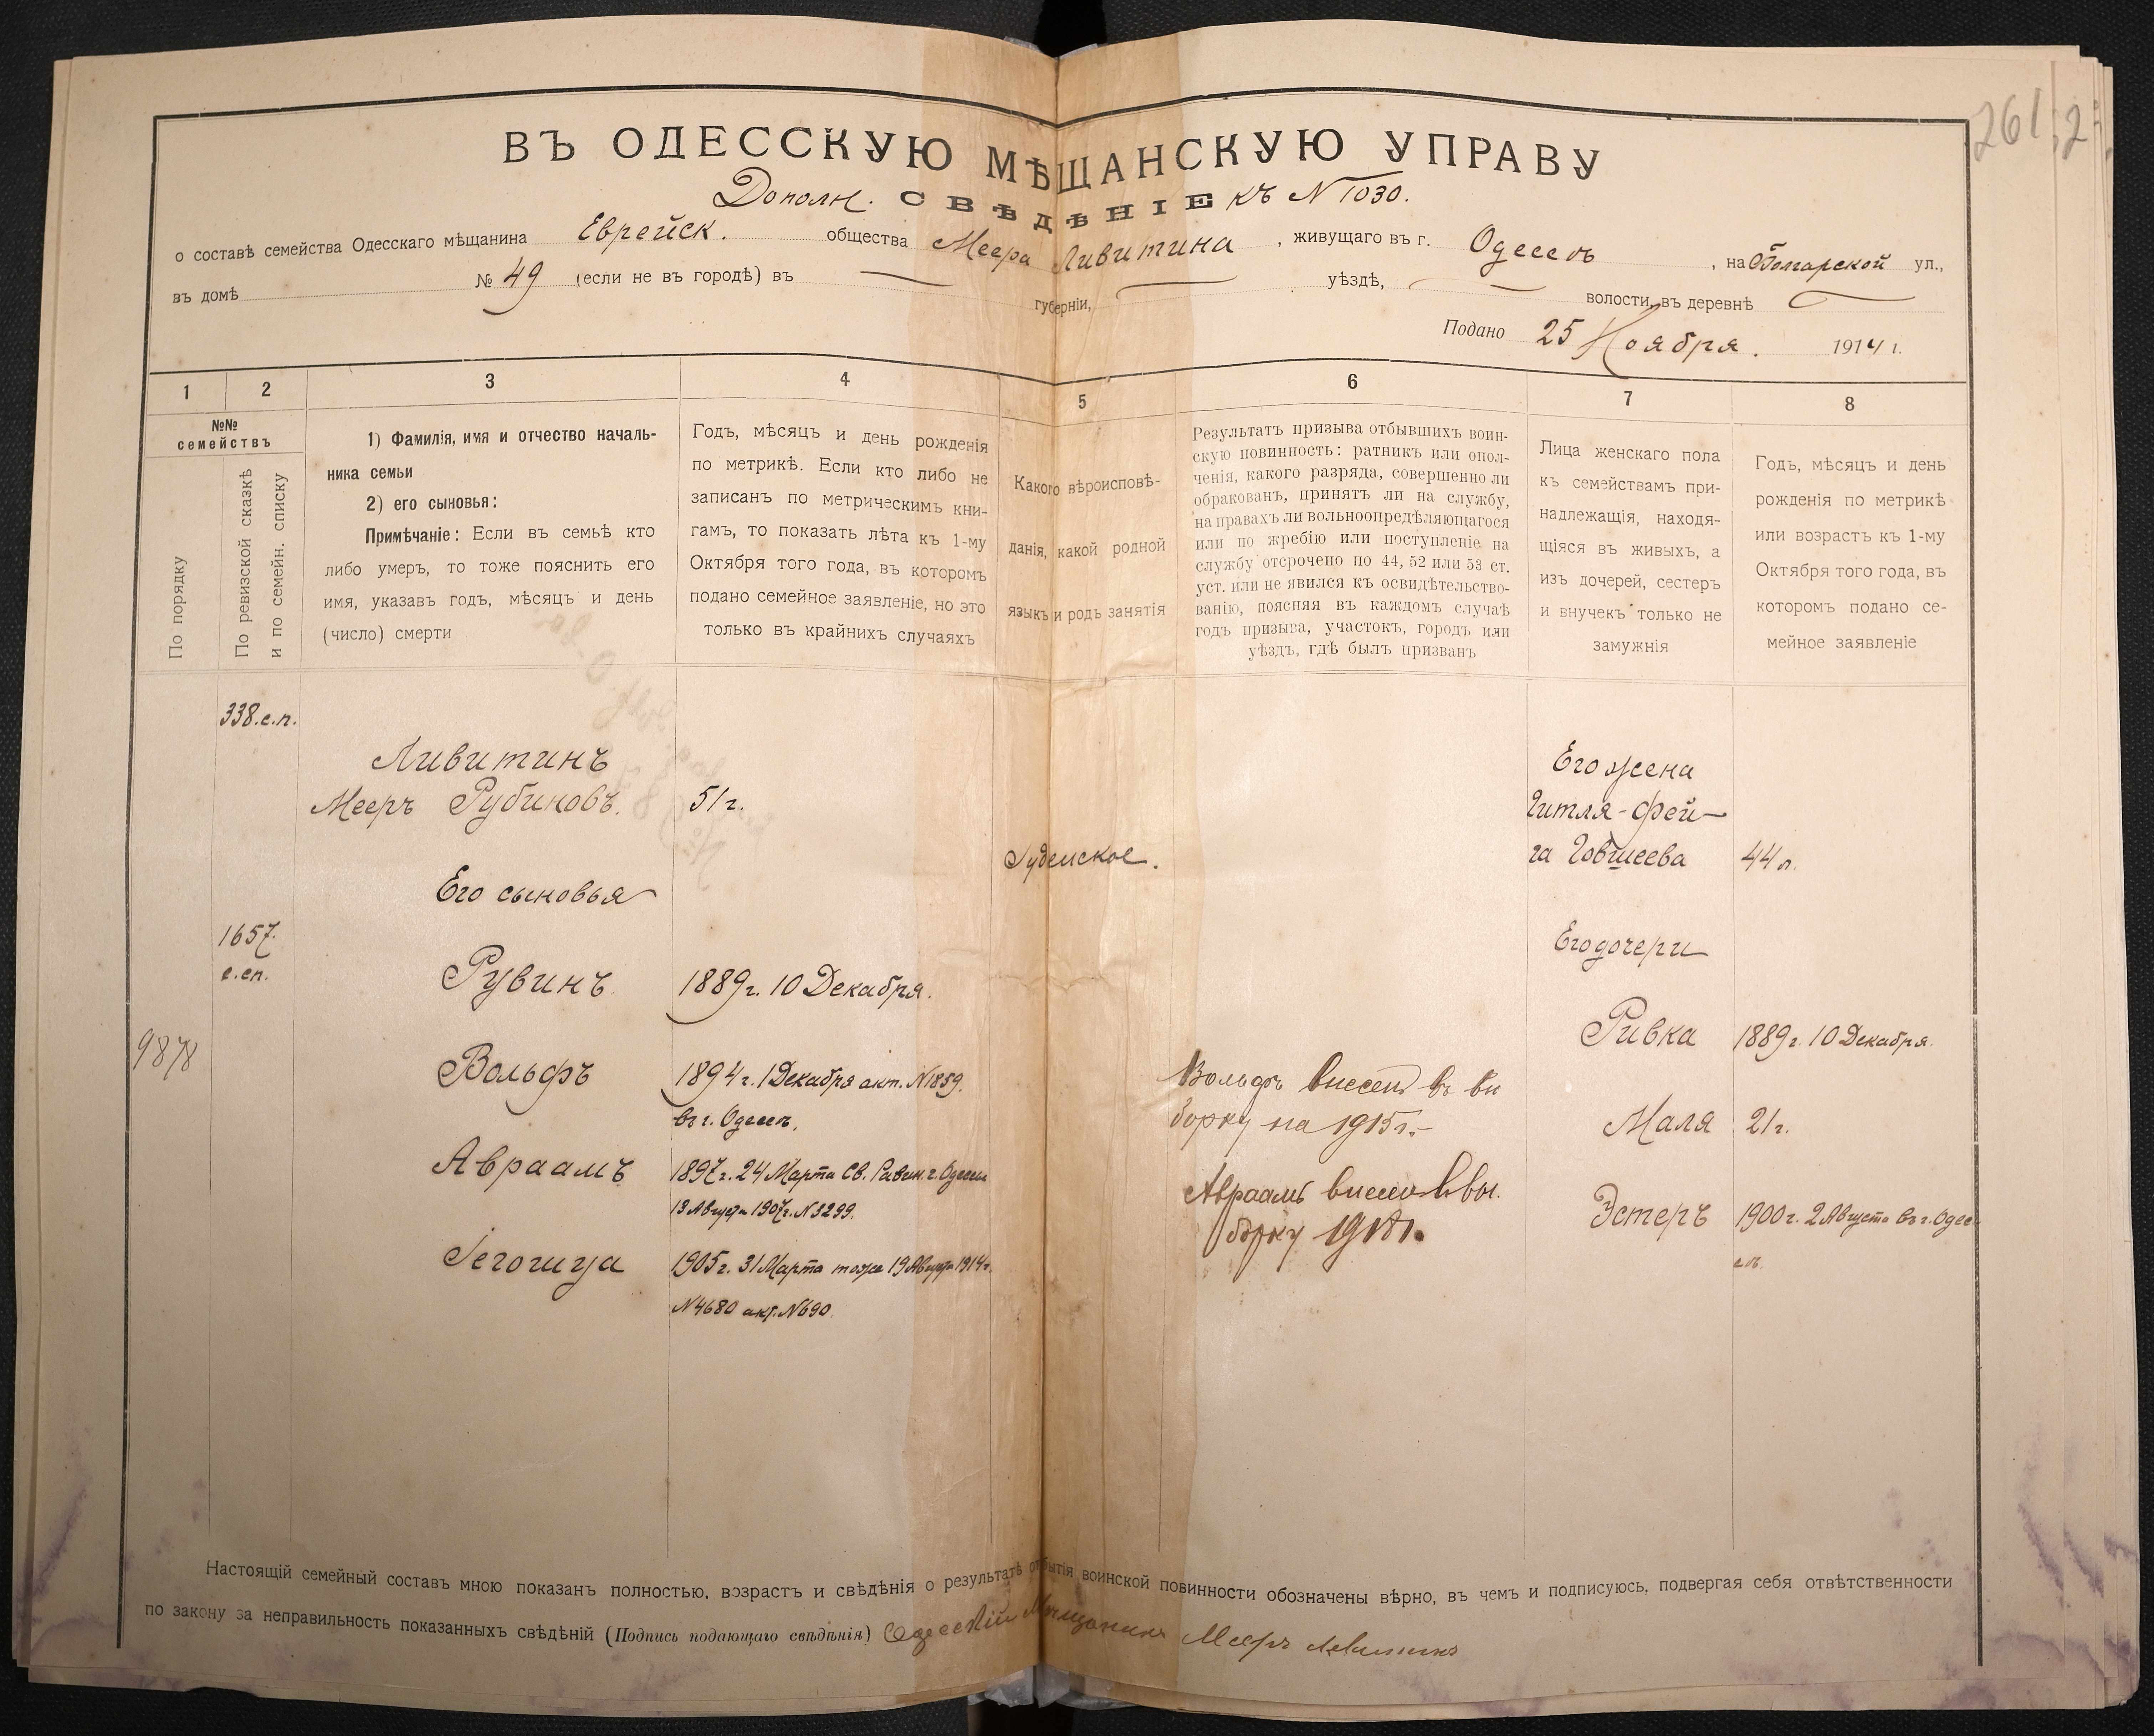 261
ВЪ ОДЕССКУЮ МѢЩАНСКУЮ УПРАВУ
Дополн. СВѢДѢНІЕ къ N 1030.
о составѣ семейства Одесскаго мѣщанина Еврейск. общества Меера Ливитина, живущаго въ г. Одессѣ, на Болгарской ул.,
въ домѣ № 49 (если не въ городѣ) въ губерніи, уѣздѣ, волости, въ деревнѣ
Подано 25 Ноября. 1914 г.
1 2 3 4 5 6 7 8
№№
семействъ
По порядку
По ревизской сказкѣ
и по семейн. списку
1) Фамилія, имя и отчество началь-
ника семьи
2) его сыновья:
Примѣчаніе: Если въ семьѣ кто
либо умеръ, то тоже пояснить его
имя, указавъ годъ, мѣсяцъ и день
(число) смерти
Годъ, мѣсяцъ и день рожденія
по метрикѣ. Если кто либо не
записанъ по метрическимъ кни-
гамъ, то показать лѣта къ 1-му
Октября того года, въ которомъ
подано семейное заявленіе, но это
только въ крайнихъ случаяхъ
Какого вѣроисповѣ-
данія, какой родной
языкъ и родъ занятія
Результатъ призыва отбывшихъ воин-
скую повинность: ратникъ или опол-
ченія, какого разряда, совершенно ли
обракованъ, принятъ ли на службу,
на правахъ ли вольноопредѣляющагося
или по жребію или поступленіе на
службу отсрочено по 44, 52 или 53 ст.
уст. или не явился къ освидѣтельство-
ванію, поясняя въ каждомъ случаѣ
годъ призыва, участокъ, городъ или
уѣздъ, гдѣ былъ призванъ
Лица женскаго пола
къ семействамъ при-
надлежащія, находя-
щіяся въ живыхъ, а
изъ дочерей, сестеръ
и внучекъ только не
замужнія
Годъ, мѣсяцъ и день
рожденія по метрикѣ
или возрастъ къ 1-му
Октября того года, въ
которомъ подано се-
мейное заявленіе
338.с.п.
Ливитинъ
Мееръ Рубиновъ. 51 г.
Іудейское.
Его жена
Гитля-Фей-
га Говшеева 44 л.
Его сыновья
Его дочери
1657.
с.сп.
Рувинъ 1889 г. 10 Декабря.
Ривка 1889 г. 10 Декабря.
9878
Вольфъ 1894 г. 1 Декабря акт. N 1859.
въ г. Одессѣ.
Вольфъ внесенъ въ вы
борку на 1915 г.
Маля 21 г.
Авраамъ 1897 г. 24 Марта Св. Равин. г. Одессы
19 Августа 1907 г. N 3299.
Авраамъ внесенъ въ вы.
борку 1918 г.
Эстеръ 1900 г. 2 Августа въ г. Одес-
сѣ.
Іегошуа 1905 г. 31 Марта тоже 19 Августа 1914 г.
N 4680 акт. N 690.
Настоящій семейный составъ мною показанъ полностью, возрастъ и свѣдѣнія о результатѣ отбытія воинской повинности обозначены вѣрно, въ чемъ и подписуюсь, подвергая себя отвѣтственности
по закону за неправильность показанныхъ свѣдѣній (Подпись подающаго свѣдѣнія) Одесскій Мѣщанинъ Мееръ Ливитинъ